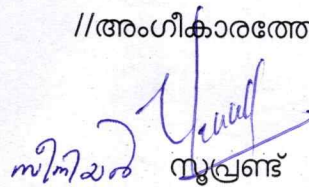 //അംഗീകാരത്തേ
സീനിയർ സൂപ്രണ്ട്